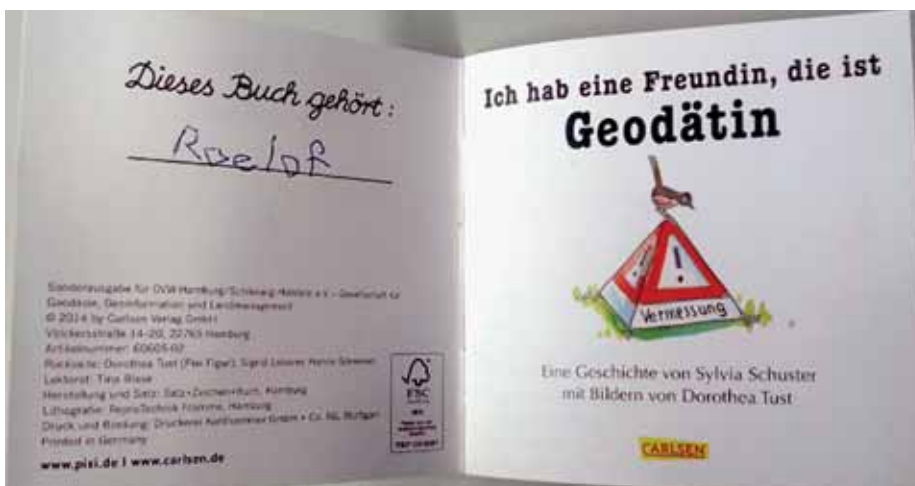 Dieses Buch gehört:
Roelof
Sonderausgabe für DVW Hamburg/Schleswig-Holstein e.V. – Gesellschaft für
Geodäsie, Geoinformation und Landmanagement
© 2014 by Carlsen Verlag GmbH
Völckersstraße 14–20, 22765 Hamburg
Artikelnummer: 60605-02
Rückseite: Dorothea Tust (Pixi Figur), Sigrid
Lektorat: Tina Blase
Herstellung und Satz: Satz+Zeichen+Buch, Hamburg
Lithografie: ReproTechnik Fromme, Hamburg
Druck und Bindung: Druckerei GmbH + Co. KG, Stuttgart
Printed in Germany
www.pixi.de I www.carlsen.de
FSC
Ich hab eine Freundin, die ist
Geodätin
!
Vermessung
Eine Geschichte von Sylvia Schuster
mit Bildern von Dorothea Tust
CARLSEN